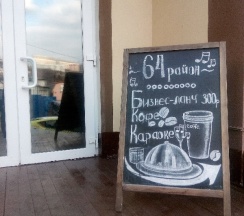 64
район
Бизнес-ланч 300р
Кофе
Караоке